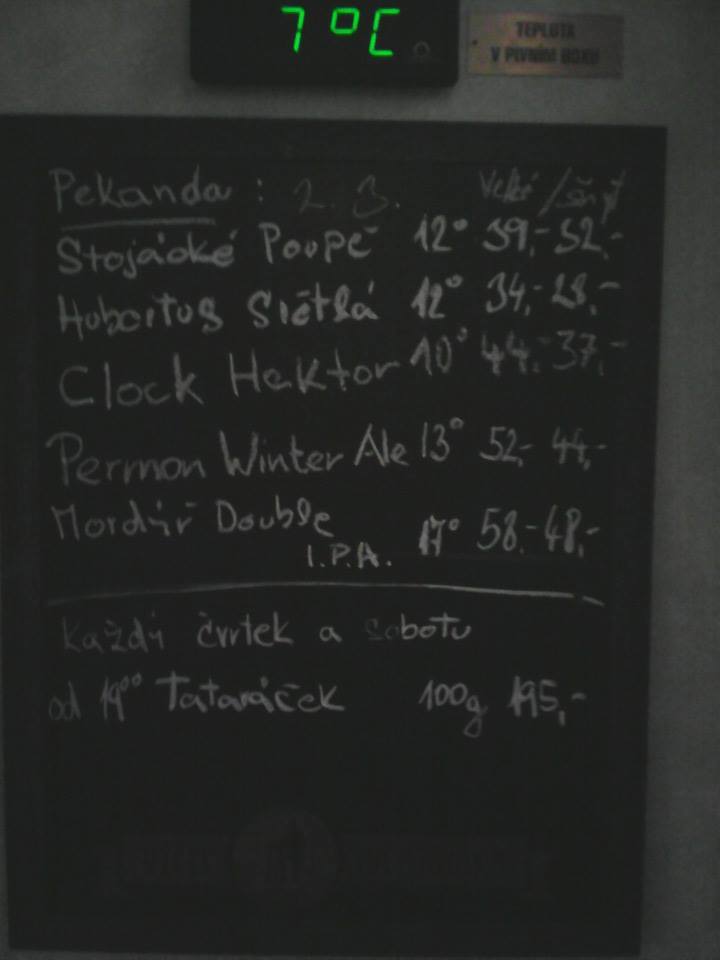 7°C
TEPLOTA
V PIVNÍM BOXU
Pekanda : 2. 3. Velké / šnyt
Stojácké Poupě 12° 39,- 32,-
Hubertus Světlá 12° 34,- 28,-
Clock Hektor 10° 44,- 37,-
Permon Winter Ale 13° 52,- 44,-
Mordýř Double
I.P.A. 17° 58,- 48,-
Každý čvrtek a sobotu
od 19⁰⁰ Tataráček 100g 195,-